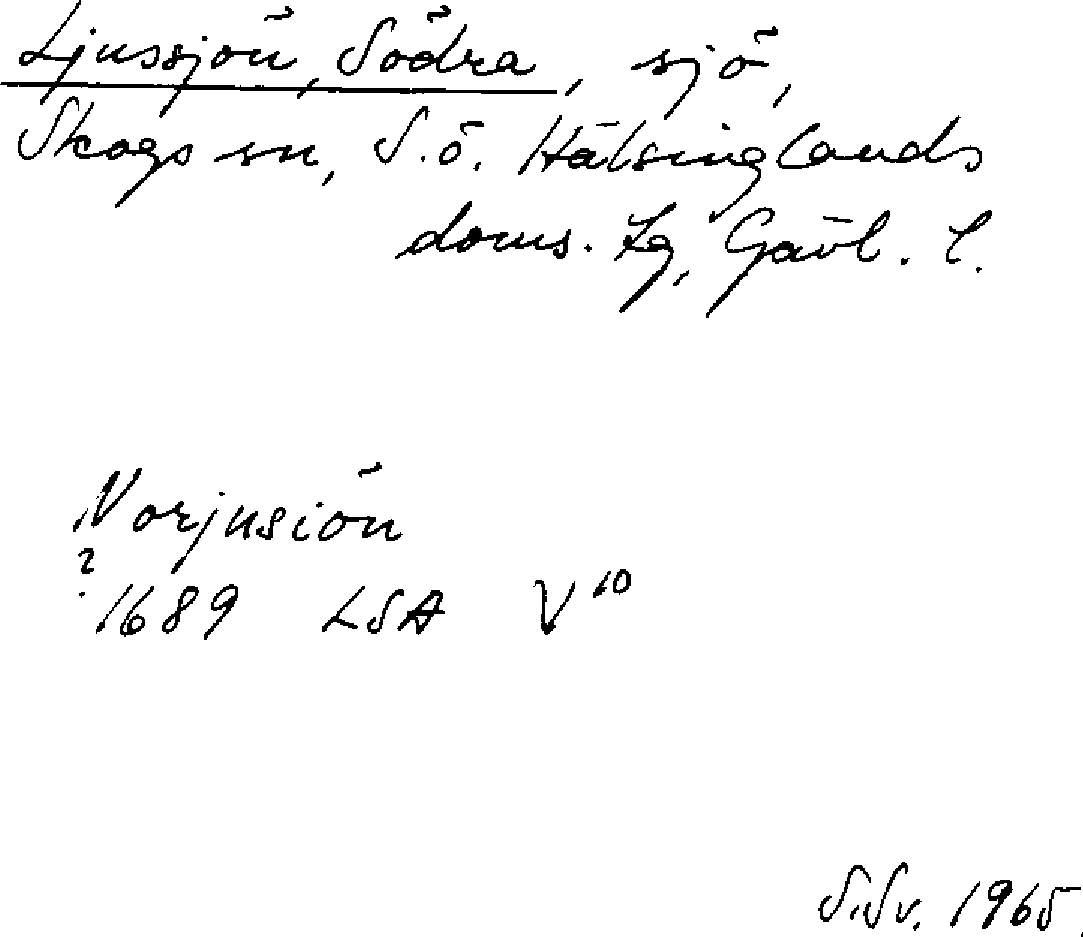 Ljussjön, Södra, sjö,
Skogs sn, S.ö. Hälsinglands
doms. tg, Gävl. l.
Norjusiön
? 1689 LSA V 10
S.Sv. 1965.